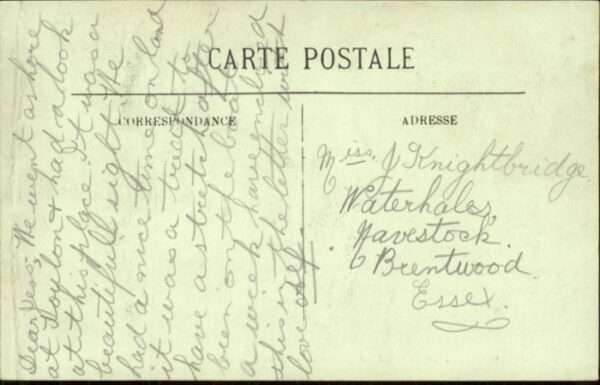 CARTE POSTALE
CORRESPONDANCE
ADRESSE
Dear Jess, We went ashore
at & had a look
at this place. It was a
beautifull sight. We
had a nice time on land
it was a treat to
have a stretch after
been on the boat
a week have enclosed
this in the letter with
love Alf.
Miss. J Knightbridge.
Waterhales,
Navestock.
Brentwood.
Essex.